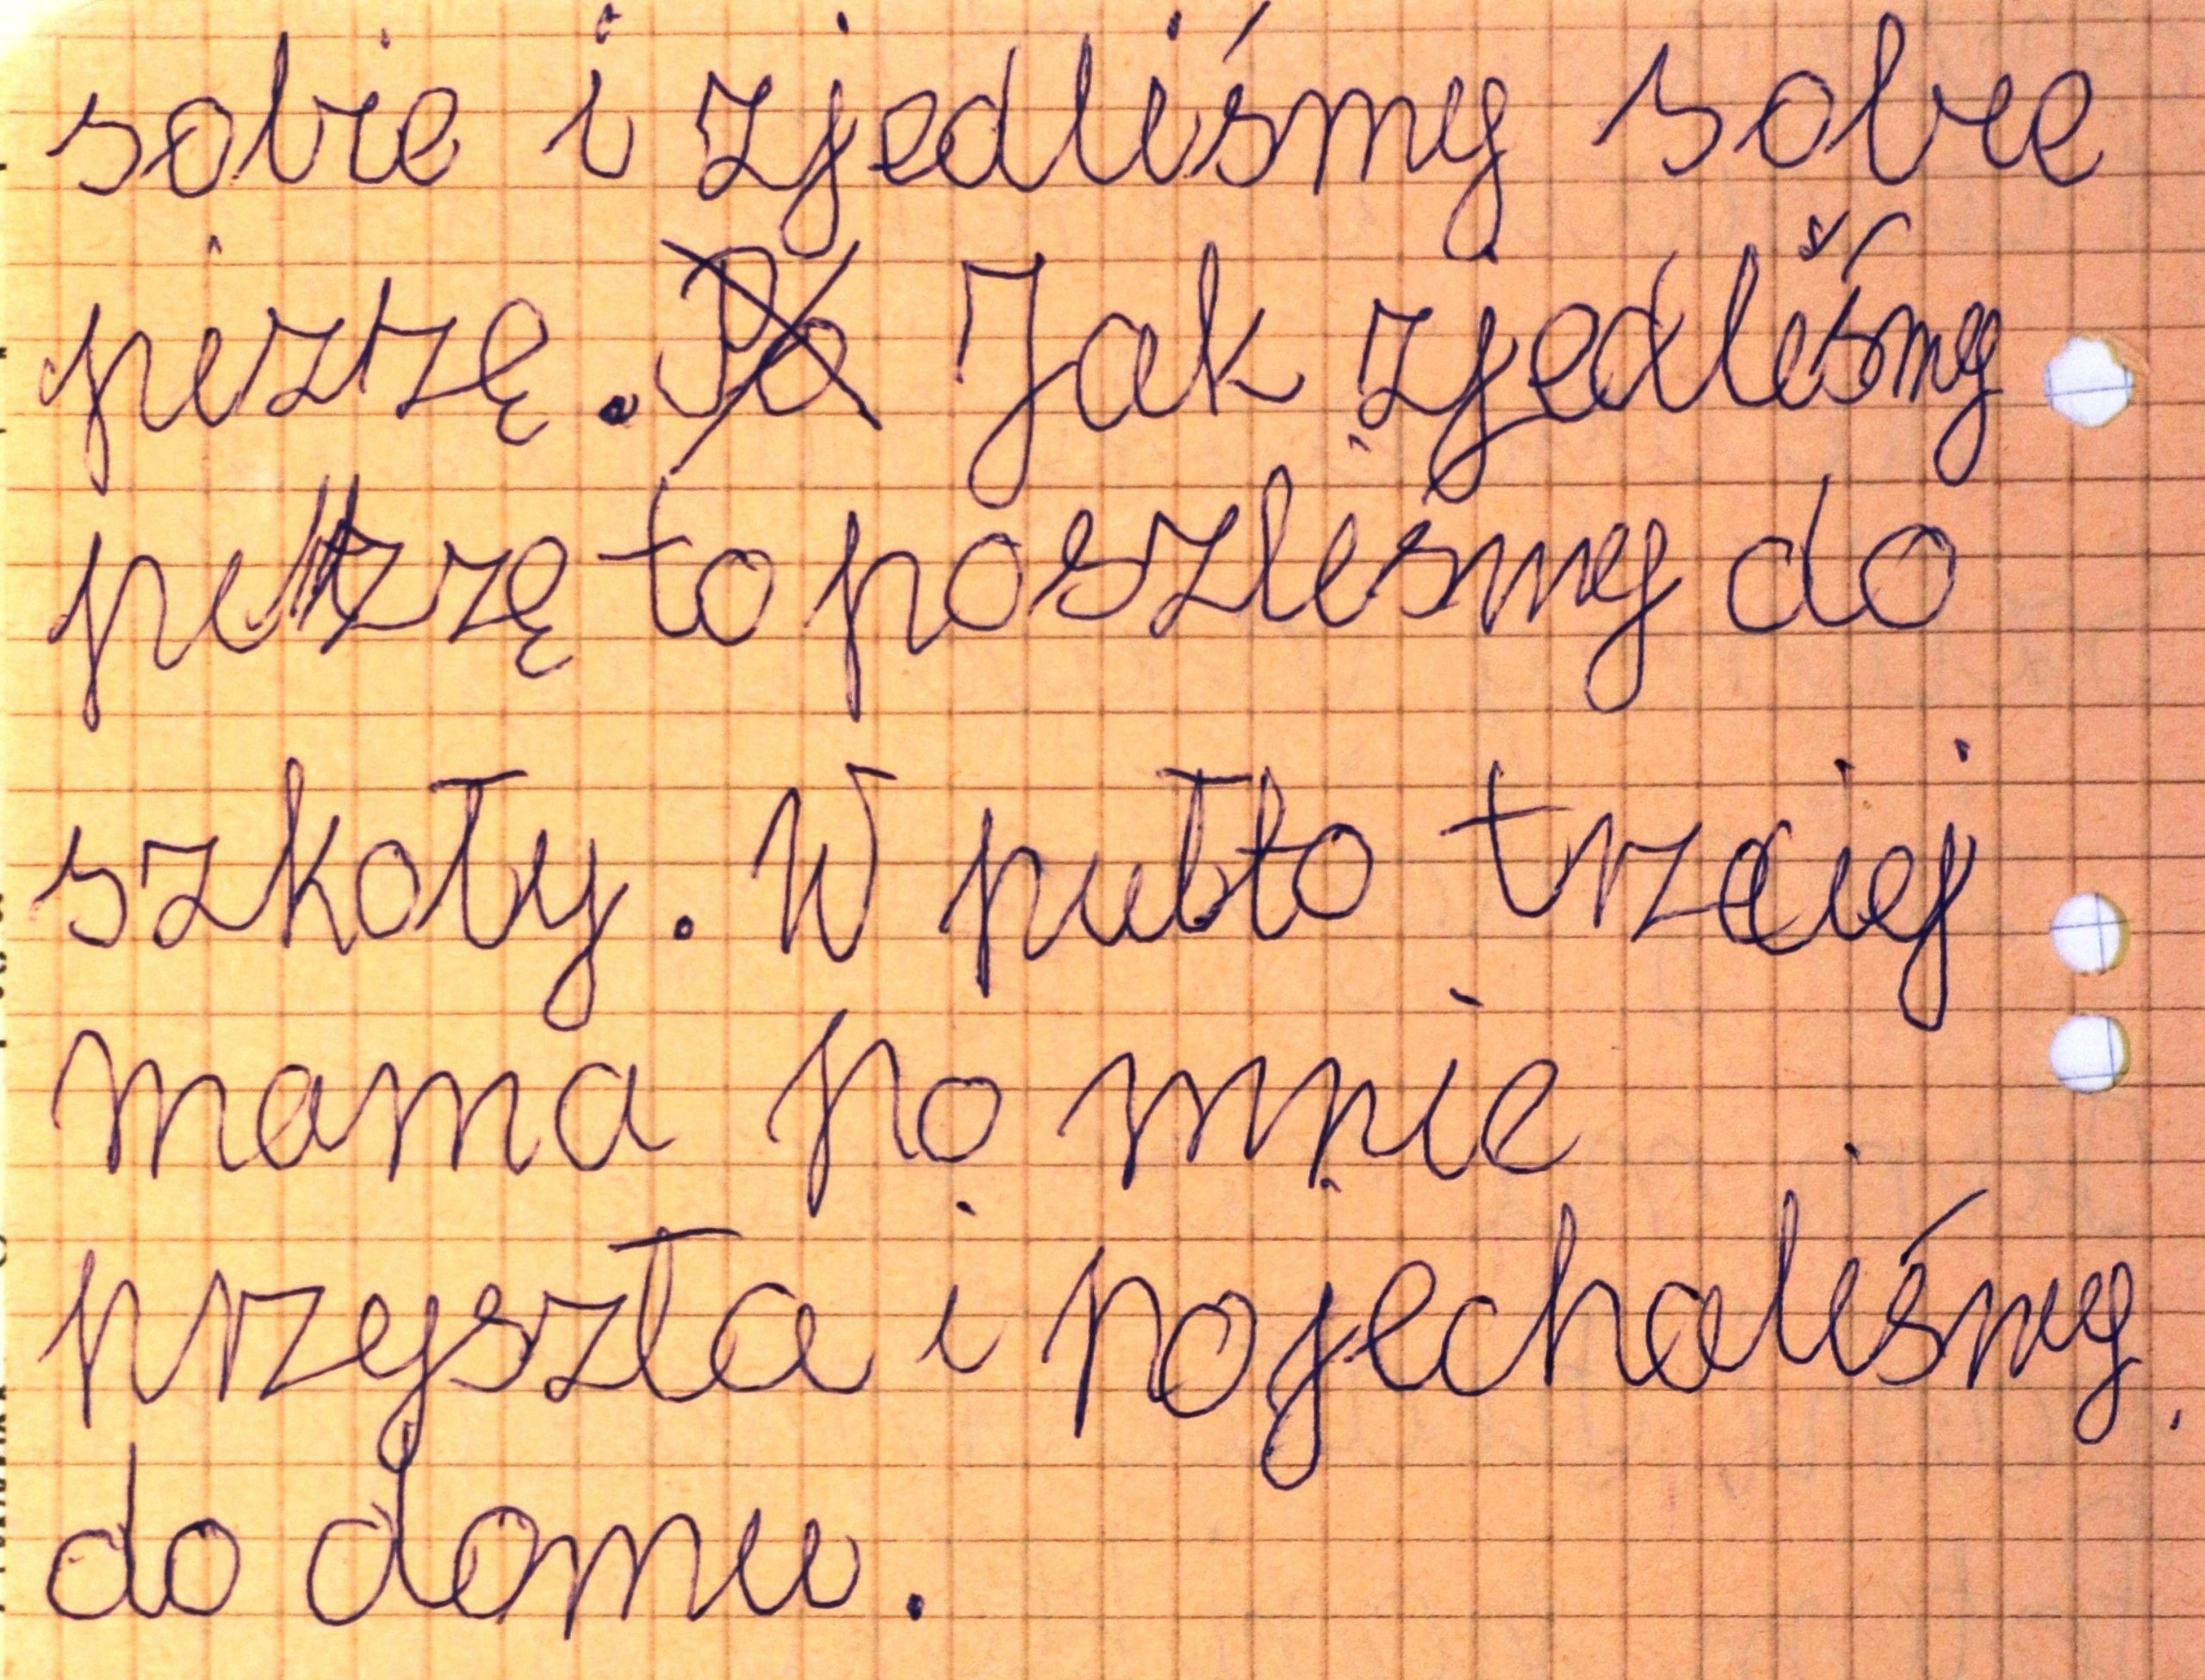 sobie i zjedliśmy sobie
pizzę. Po Jak zjedliśmy
pizzę to poszliśmy do
szkoły. W putto trzeciej
mama po mnie
przyszła i pojechaliśmy
do domu.